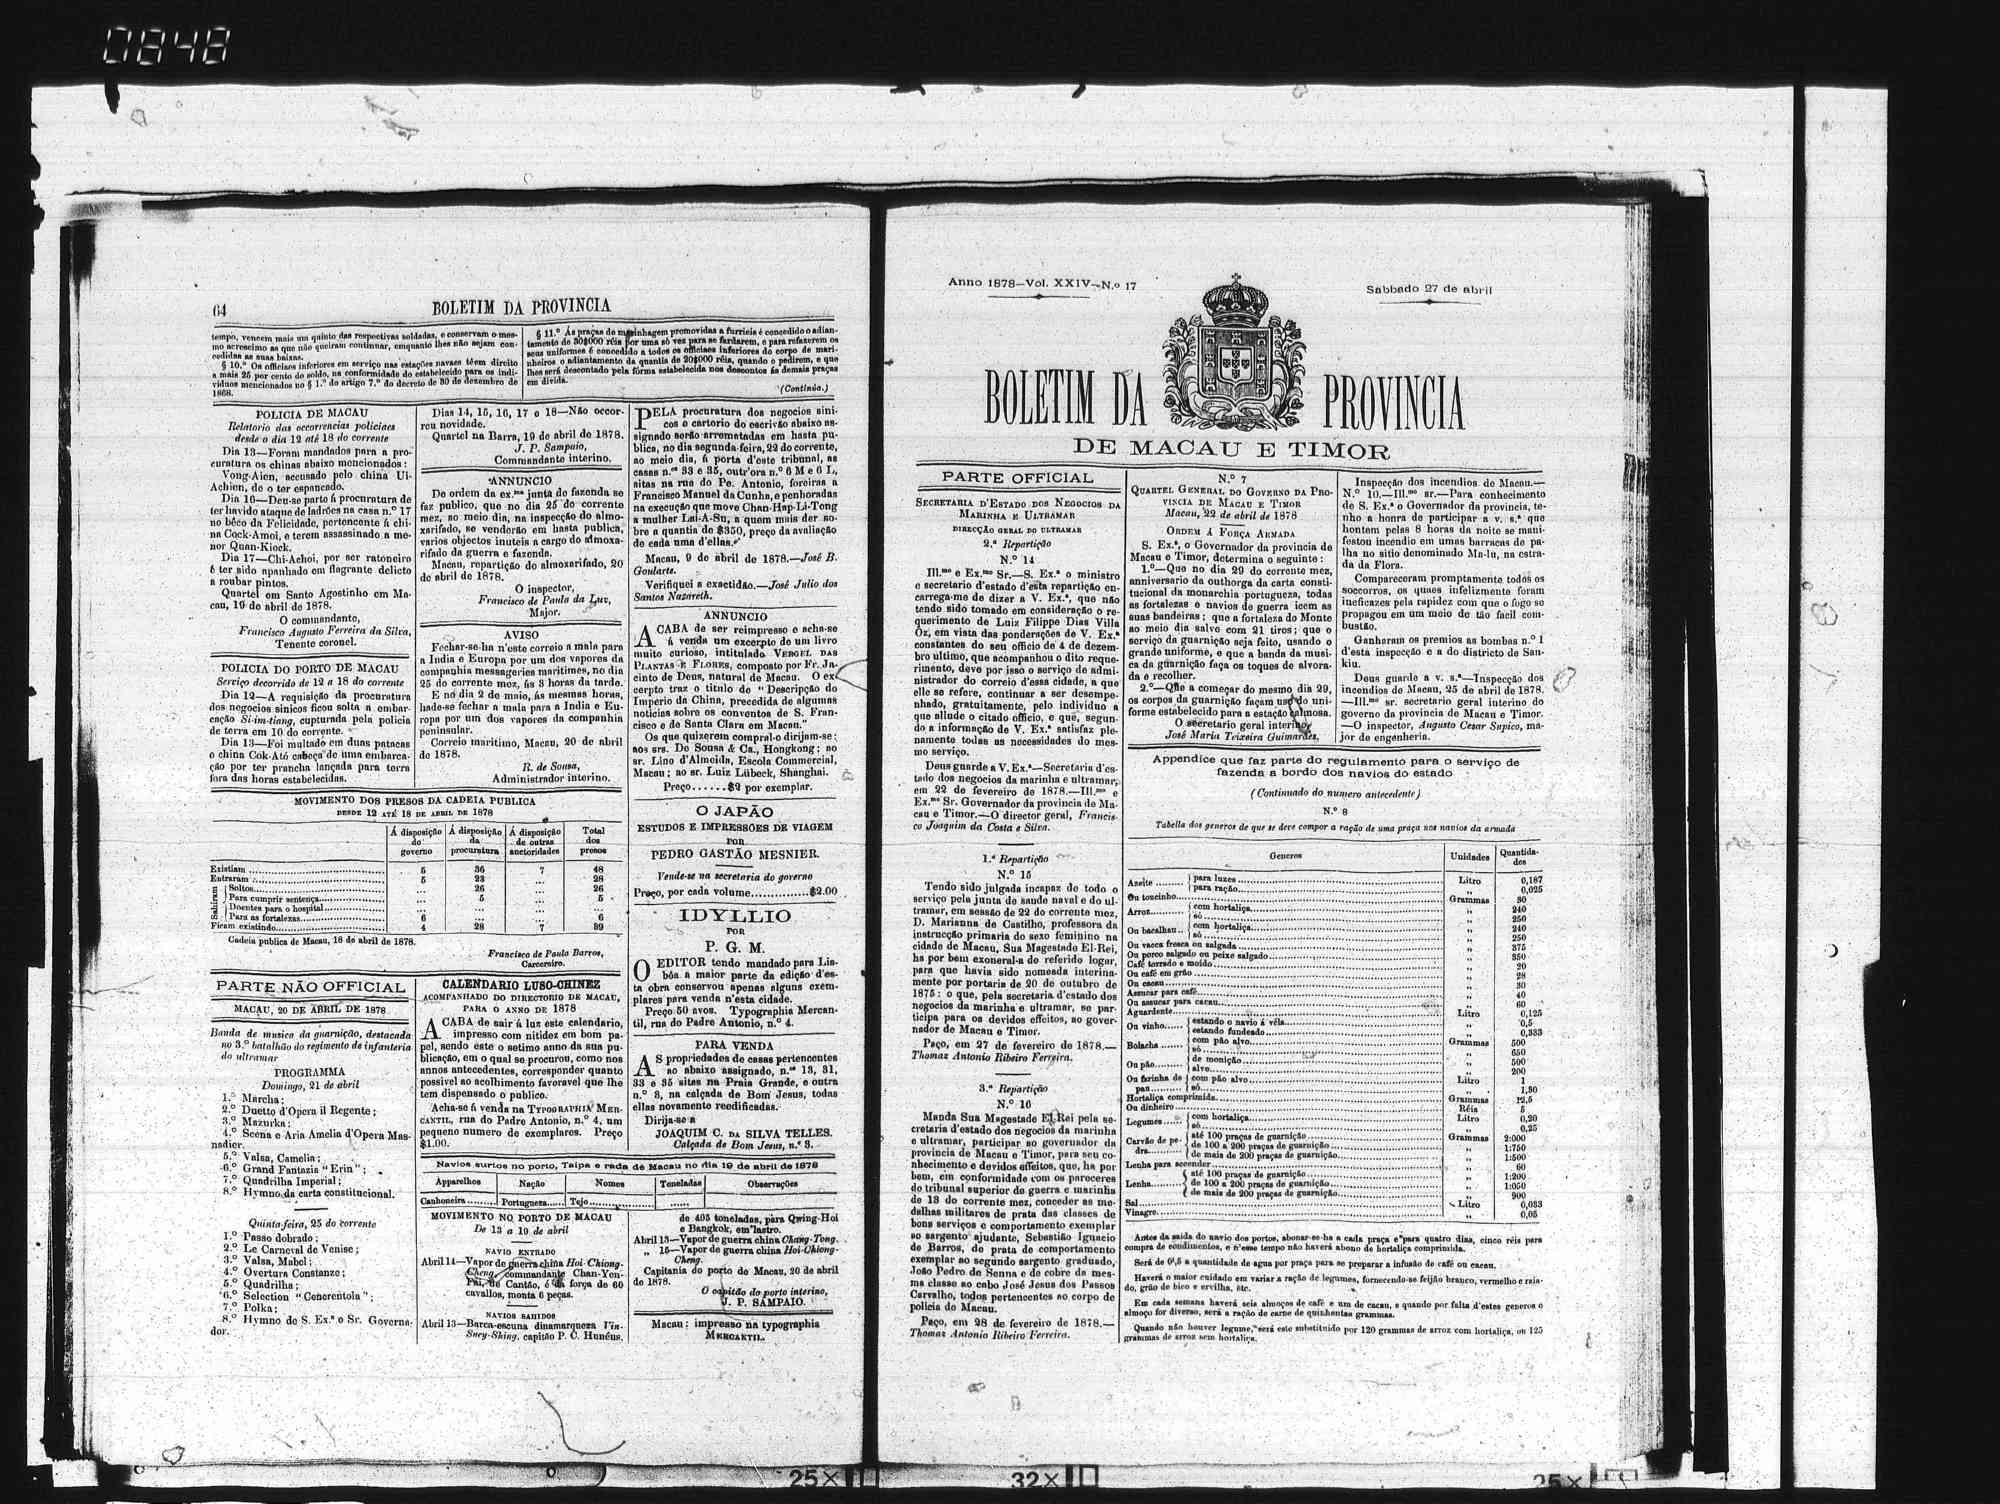 0848
64
BOLETIM DA PROVINCIA
tempo, vencem mais um quinto das respectivas soldadas, e conservam o mes-
mo acrescimo as que não queiram continuar, emquanto lhes não sejam con-
cedidas as suas baixas.
§ 10.º Os officiaes inferiores em serviço nas estações navaes têem direito
a mais 25 por cento do soldo, na conformidade do estabelecido para os indi-
viduos mencionados no § 1.º do artigo 7.º do decreto de 30 de dezembro de
1868.
§ 11.º Ás praças de marinhagem promovidas a furrieis é concedido o adian-
tamento de 30$000 réis por uma só vez para se fardarem, e para refazerem os
seus uniformes é concedido a todos os officiaes inferiores do corpo de mari-
nheiros o adiantamento da quantia de 20$000 réis, quando o pedirem, e que
lhes será descontado pela fórma estabelecida nos descontos ás demais praças
em divida.
(Continúa.)
POLICIA DE MACAU
Relatorio das occorrencias policiaes
desde o dia 12 até 18 do corrente
Dia 13—Foram mandados para a pro-
curatura os chinas abaixo mencionados:
Vong-Aien, accusado pelo china Ui-
Achien, de o ter espancado.
Dia 16—Deu-se parte á procuratura de
ter havido ataque de ladrões na casa n.º 17
no bêco da Felicidade, pertencente á chi-
na Cock-Amoi, e terem assassinado a me-
nor Quan-Kiock.
Dia 17—Chi-Achoi, por ser ratoneiro
é ter sido apanhado em flagrante delicto
a roubar pintos.
Quartel em Santo Agostinho em Ma-
cau, 19 de abril de 1878.
O commandante,
Francisco Augusto Ferreira da Silva,
Tenente coronel.
POLICIA DO PORTO DE MACAU
Serviço decorrido de 12 a 18 do corrente
Dia 12—A requisição da procuratura
dos negocios sinicos ficou solta a embar-
cação Si-im-tiang, capturada pela policia
de terra em 10 do corrente.
Dia 13—Foi multado em duas patacas
o china Cok-Ató cabeça de uma embarca-
ção por ter prancha lançada para terra
fora das horas estabelecidas.
Dias 14, 15, 16, 17 e 18—Não occor-
reu novidade.
Quartel na Barra, 19 de abril de 1878.
J. P. Sampaio,
Commandante interino.
ANNUNCIO
De ordem da ex.ma junta de fazenda se
faz publico, que no dia 25 do corrente
mez, ao meio dia, na inspecção do almo-
xarifado, se venderão em hasta publica,
varios objectos inuteis a cargo do almoxa-
rifado da guerra e fazenda.
Macau, repartição do almoxarifado, 20
de abril de 1878.
O inspector,
Francisco de Paula da Luz,
Major.
AVISO
Fechar-se-ha n'este correio a mala para
a India e Europa por um dos vapores da
companhia messageries maritimes, no dia
25 do corrente mez, ás 3 horas da tarde.
E no dia 2 de maio, ás mesmas horas,
hade-se fechar a mala para a India e Eu-
ropa por um dos vapores da companhia
peninsular.
Correio maritimo, Macau, 20 de abril
de 1878.
R. de Sousa,
Administrador interino.
PELA procuratura dos negocios sini-
cos e cartorio do escrivão abaixo as-
signado serão arrematadas em hasta pu-
blica, no dia segunda-feira, 22 do corrente,
ao meio dia, á porta d'este tribunal, as
casas n.os 33 e 35, outr'ora n.º 6 M e 6 L,
sitas na rua do Pe. Antonio, foreiras a
Francisco Manuel da Cunha, e penhoradas
na execução que move Chan-Hap-Li-Tong
a mulher Lai-A-Su, a quem mais der so-
bre a quantia de $350, preço da avaliação
de cada uma d'ellas.
Macau, 9 de abril de 1878.—José B.
Goularte.
Verifiquei a exactidão.—José Julio dos
Santos Nazareth.
ANNUNCIO
ACABA de ser reimpresso e acha-se
á venda um excerpto de um livro
muito curioso, intitulado VERGEL DAS
PLANTAS E FLORES, composto por Fr. Ja-
cinto de Deus, natural de Macau. O ex-
cerpto traz o titulo de "Descripção do
Imperio da China, precedida de algumas
noticias sobre os conventos de S. Fran-
cisco e de Santa Clara em Macau."
Os que quizerem compral-o dirijam-se:
aos srs. De Sousa & Ca., Hongkong; ao
sr. Lino d'Almeida, Escola Commercial,
Macau; ao sr. Luiz Lübeck, Shanghai.
Preço......$2 por exemplar.
MOVIMENTO DOS PRESOS DA CADEIA PUBLICA
DESDE 12 ATÉ 18 DE ABRIL DE 1878
Á disposição do governo | Á disposição da procuratura | Á disposição de outras auctoridades | Total dos presos
Existiam 5 36 7 48
Entraram 5 23 ... 28
Sahiram
Soltos ... 26 ... 26
Para cumprir sentença ... 5 ... 5
Doentes para o hospital ... ... ... ...
Para as fortalezas 6 ... ... 6
Ficam existindo 4 28 7 39
Cadeia publica de Macau, 18 de abril de 1878.
Francisco de Paulo Barros,
Carcereiro.
O JAPÃO
ESTUDOS E IMPRESSÕES DE VIAGEM
POR
PEDRO GASTÃO MESNIER.
Vende-se na secretaria do governo
Preço, por cada volume............$2.00
IDYLLIO
POR
P. G. M.
O EDITOR tendo mandado para Lis-
bôa a maior parte da edição d'es-
ta obra conservou apenas alguns exem-
plares para venda n'esta cidade.
Preço 50 avos. Typographia Mercan-
til, rua do Padre Antonio, n.º 4.
PARA VENDA
AS propriedades de casas pertencentes
ao abaixo assignado, n.os 13, 31,
33 e 35 sitas na Praia Grande, e outra
n.º 3, na calçada de Bom Jesus, todas
ellas novamente reedificadas.
Dirija-se a
JOAQUIM C. DA SILVA TELLES.
Calçada de Bom Jesus, n.º 3.
PARTE NÃO OFFICIAL
MACAU, 20 DE ABRIL DE 1878
Banda de musica da guarnição, destacada
no 3.º batalhão do regimento de infanteria
do ultramar
PROGRAMMA
Domingo, 21 de abril
1.º Marcha;
2.º Duetto d'Opera il Regente;
3.º Mazurka;
4.º Scena e Aria Amelia d'Opera Mas-
nadier.
5.º Valsa, Camelia;
6.º Grand Fantazia "Erin";
7.º Quadrilha Imperial;
8.º Hymno da carta constitucional.
Quinta-feira, 25 do corrente
1.º Passo dobrado;
2.º Le Carneval de Venise;
3.º Valsa, Mabel;
4.º Overtura Constanze;
5.º Quadrilha;
6.º Selection "Cenerentola";
7.º Polka;
8.º Hymno de S. Ex.ª o Sr. Governa-
dor.
CALENDARIO LUSO-CHINEZ
ACOMPANHADO DO DIRECTORIO DE MACAU,
PARA O ANNO DE 1878
ACABA de sair á luz este calendario,
impresso com nitidez em bom pa-
pel, sendo este o setimo anno da sua pu-
blicação, em o qual se procurou, como nos
annos antecedentes, corresponder quanto
possivel ao acolhimento favoravel que lhe
tem dispensado o publico.
Acha-se á venda na TYPOGRAPHIA MER-
CANTIL, rua do Padre Antonio, n.º 4, um
pequeno numero de exemplares. Preço
$1.00.
Navios surtos no porto, Taipa e rada de Macau no dia 19 de abril de 1878
Apparelhos | Nação | Nomes | Toneladas | Observações
Canhoneira | Portugueza | Tejo | ......
MOVIMENTO NO PORTO DE MACAU
De 13 a 19 de abril
NAVIO ENTRADO
Abril 14—Vapor de guerra china Hoi-Chiong-
Cheng, commandante Chan-Yen-
Pai, de Cantão, é da força de 60
cavallos, monta 6 peças.
NAVIOS SAHIDOS
Abril 13—Barca-escuna dinamarqueza Vin-
Suey-Shing, capitão P. C. Hunéus,
de 405 toneladas, para Qwing-Hoi
e Bangkok, em lastro.
Abril 13—Vapor de guerra china Chang-Tong.
„ 15—Vapor de guerra china Hoi-Chiong-
Cheng.
Capitania do porto de Macau, 20 de abril
de 1878.
O capitão do porto interino,
J. P. SAMPAIO.
Macau: impresso na typographia
MERCANTIL.
Anno 1878—Vol. XXIV—N.º 17
Sabbado 27 de abril
BOLETIM DA PROVINCIA
DE MACAU E TIMOR
PARTE OFFICIAL
SECRETARIA D'ESTADO DOS NEGOCIOS DA
MARINHA E ULTRAMAR
DIRECÇÃO GERAL DO ULTRAMAR
2.ª Repartição
N.º 14
Ill.mo e Ex.mo Sr.—S. Ex.ª o ministro
e secretario d'estado d'esta repartição en-
carrega-me de dizer a V. Ex.ª, que não
tendo sido tomado em consideração o re-
querimento de Luiz Filippe Dias Villa
Oz, em vista das ponderações de V. Ex.ª
constantes do seu officio de 4 de dezem-
bro ultimo, que acompanhou o dito reque-
rimento, deve por isso o serviço de admi-
nistrador do correio d'essa cidade, a que
elle se refere, continuar a ser desempe-
nhado, gratuitamente, pelo individuo a
que allude o citado officio, e que, segun-
do a informação de V. Ex.ª satisfaz ple-
namente todas as necessidades do mes-
mo serviço.
Deus guarde a V. Ex.ª—Secretaria d'es-
tado dos negocios da marinha e ultramar,
em 22 de fevereiro de 1878.—Ill.mo e
Ex.mo Sr. Governador da provincia de Ma-
cau e Timor.—O director geral, Francis-
co Joaquim da Costa e Silva.
1.ª Repartição
N.º 15
Tendo sido julgada incapaz de todo o
serviço pela junta de saude naval e do ul-
tramar, em sessão de 22 do corrente mez,
D. Marianna de Castilho, professora da
instrucção primaria do sexo feminino na
cidade de Macau, Sua Magestade El-Rei,
ha por bem exoneral-a do referido logar,
para que havia sido nomeada interina-
mente por portaria de 20 de outubro de
1875: o que, pela secretaria d'estado dos
negocios da marinha e ultramar, se par-
ticipa para os devidos effeitos, ao gover-
nador de Macau e Timor.
Paço, em 27 de fevereiro de 1878.—
Thomaz Antonio Ribeiro Ferreira.
3.ª Repartição
N.º 16
Manda Sua Magestade El-Rei pela se-
cretaria d'estado dos negocios da marinha
e ultramar, participar ao governador da
provincia de Macau e Timor, para seu co-
nhecimento e devidos effeitos, que, ha por
bem, em conformidade com os pareceres
do tribunal superior de guerra e marinha
de 13 do corrente mez, conceder as me-
dalhas militares de prata das classes de
bons serviços e comportamento exemplar
ao sargento ajudante, Sebastião Ignacio
de Barros, de prata de comportamento
exemplar ao segundo sargento graduado,
João Pedro de Senna e de cobre da mes-
ma classe ao cabo José Jesus dos Passos
Carvalho, todos pertencentes ao corpo de
policia de Macau.
Paço, em 28 de fevereiro de 1878.—
Thomaz Antonio Ribeiro Ferreira.
N.º 7
QUARTEL GENERAL DO GOVERNO DA PRO-
VINCIA DE MACAU E TIMOR
Macau, 22 de abril de 1878
ORDEM Á FORÇA ARMADA
S. Ex.ª, o Governador da provincia de
Macau e Timor, determina o seguinte:
1.º—Que no dia 29 do corrente mez,
anniversario da outhorga da carta consti-
tucional da monarchia portugueza, todas
as fortalezas e navios de guerra icem as
suas bandeiras; que a fortaleza do Monte
ao meio dia salve com 21 tiros; que o
serviço da guarnição seja feito, usando o
grande uniforme, e que a banda da musi-
ca da guarnição faça os toques de alvora-
da e recolher.
2.º—Que a começar do mesmo dia 29,
os corpos da guarnição façam uso do uni-
forme estabelecido para a estação calmosa.
O secretario geral interino,
José Maria Teixeira Guimarães.
Inspecção dos incendios de Macau.—
N.º 10.—Ill.mo sr.—Para conhecimento
de S. Ex.ª o Governador da provincia, te-
nho a honra de participar a v. s.ª que
hontem pelas 8 horas da noite se mani-
festou incendio em umas barracas de pa-
lha no sitio denominado Ma-lu, na estra-
da da Flora.
Compareceram promptamente todos os
soccorros, os quaes infelizmente foram
inefficazes pela rapidez com que o fogo se
propagou em um meio de tão facil com-
bustão.
Ganharam os premios as bombas n.º 1
d'esta inspecção e a do districto de San-
kiu.
Deus guarde a v. s.ª—Inspecção dos
incendios de Macau, 25 de abril de 1878.
—Ill.mo sr. secretario geral interino do
governo da provincia de Macau e Timor.
—O inspector, Augusto Cesar Supico, ma-
jor de engenheria.
Appendice que faz parte do regulamento para o serviço de
fazenda a bordo dos navios do estado
(Continuado do numero antecedente)
N.º 8
Tabella dos generos de que se deve compor a ração de uma praça nos navios da armada
Generos | Unidades | Quantidades
Azeite para luzes Litro 0,187
para ração „ 0,025
Ou toucinho Grammas 30
Arroz com hortaliça „ 240
só „ 250
Ou bacalhau com hortaliça „ 240
só „ 250
Ou vacca fresca ou salgada „ 375
Ou porco salgado ou peixe salgado „ 350
Café torrado e moido „ 20
Ou café em grão „ 28
Ou cacau „ 30
Assucar para café „ 40
Ou assucar para cacau „ 60
Aguardente Litro 0,125
Ou vinho estando o navio á véla „ 0,5
estando fundeado „ 0,333
Bolacha com pão alvo Grammas 500
só „ 650
Ou pão de monição „ 500
alvo „ 200
Ou farinha de pau com pão alvo Litro 1
só „ 1,30
Hortaliça comprimida Grammas 12,5
Ou dinheiro Réis 5
Legumes com hortaliça Litro 0,20
só „ 0,25
Carvão de pedra até 100 praças de guarnição Grammas 2:000
de 100 a 200 praças de guarnição „ 1:750
de mais de 200 praças de guarnição „ 1:500
Lenha para accender „ 60
Lenha até 100 praças de guarnição „ 1:200
de 100 a 200 praças de guarnição „ 1:050
de mais de 200 praças de guarnição „ 900
Sal Litro 0,033
Vinagre „ 0,05
Antes da saida do navio dos portos, abonar-se-ha a cada praça e para quatro dias, cinco réis para
compra de condimentos, e n'esse tempo não haverá abono de hortaliça comprimida.
Será de 0l,5 a quantidade de agua por praça para se preparar a infusão de café ou cacau.
Haverá o maior cuidado em variar a ração de legumes, fornecendo-se feijão branco, vermelho e raia-
do, grão de bico e ervilha, etc.
Em cada semana haverá seis almoços de café e um de cacau, e quando por falta d'estes generos o
almoço for diverso, será a ração de carne de quinhentas grammas.
Quando não houver legume, será este substituido por 120 grammas de arroz com hortaliça, ou 125
grammas de arroz sem hortaliça.
25X
32X
25X